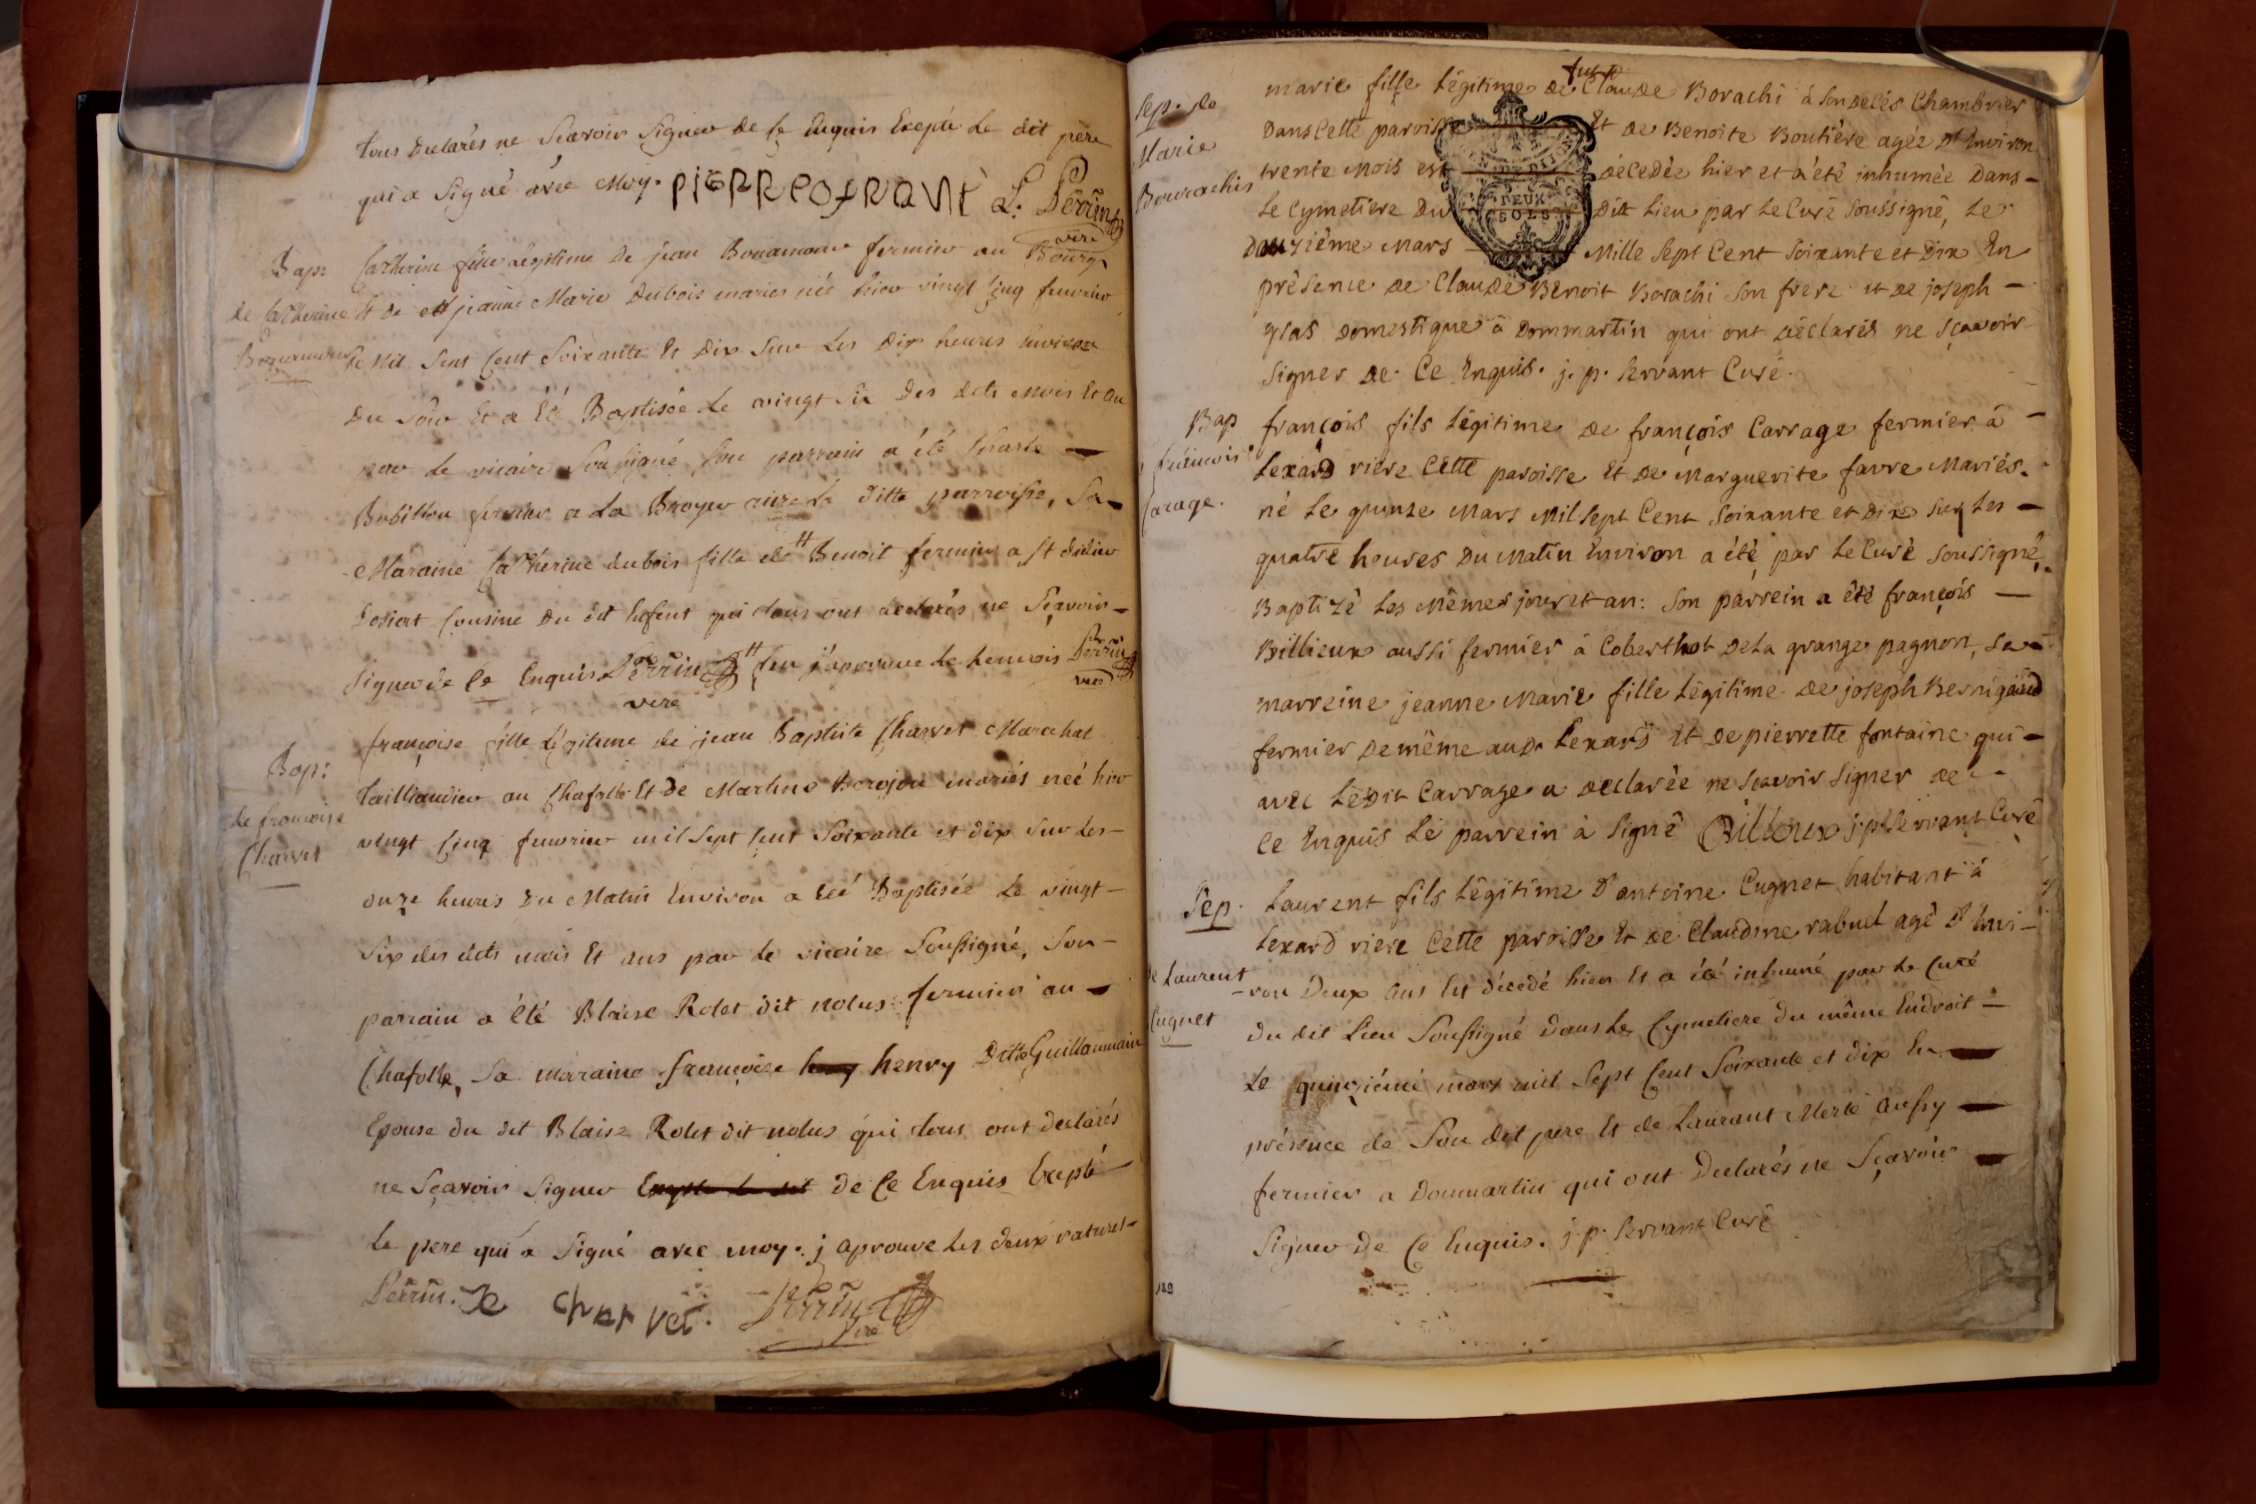 tous declarés ne Scavoir Signer de ce Enquis Excepté Le dit père
qui a Signé avec Moy. PIERREOFRANT L. Perrin
vire
Bap:
de Catherine
Catherine fille Légitime de jean Bonamour fermier au Bourg
Et de jeanne Marie Dubois mariés née hier vingt cinq feuvrier
Mil Sept Cent Soixante Et Dix Sur Les Dix heures Environ
Du Soir Et a Eté Baptisée Le vingt Six Des dits Mois Et an
par Le vicaire Soussigné Son parrain a été
fermier a La Broyer rière La ditte parroisse, Sa
Maraine Catherine dubois fille de Benoit fermier a St didier
Cousine Du dit Enfent qui tous ont declarés ne Sçavoir
Signer de Ce Enquis Perrin j'approuve Le Perrin
vire
vire
Bap:
de françoise
Charvet
françoise fille Légitime de jean Baptiste Charvet Marechal
Tailliandier au Chafolle Et de Martine mariés neé hier
vingt Cinq feuvrier mil Sept Cent Soixante et dix Sur Les
onze heures Du Matin Environ a Eté Baptisée Le vingt
Six des dits mois Et ans par Le vicaire Soussigné, Son
parrain a été Blaise Rolet dit nolus fermier au
Chafolle, Sa maraine françoise henry Ditte Guillaumain
Epouse du dit Blaise Rolet dit nolus qui tous ont declarés
ne Sçavoir Signer Excepté le dit de Ce Enquis Excepté
Le pere qui a Signé avec moy. j aprouve Les deux ratures
Perrin. Charvet. Perrin
vire
Sep. de
Marie
Bourachis
marie fille Légitime de fut Claude Borachi à Son decés Chambrier
Dans Cette paroisse Et de Benoite Boutière agée d'Environ
trente Mois est décedée hier et a été inhumée Dans
Le Cymetiere Du Dit Lieu par Le Curé Soussigné, Le
Douzième Mars Mille Sept Cent Soixante et Dix En
présence de Claude Benoit Borachi Son frere et de joseph
gras Domestique à Dommartin qui ont déclarés ne Sçavoir
Signer de Ce Enquis. j. p. Servant Curé.
DEUX
SOLS
Bap
françois
Carage.
françois fils Légitime de françois Carrage fermier à
Lexard riere Cette paroisse Et de Marguerite favre Mariés.
né Le quinze Mars Mil Sept Cent Soixante et Dix Sur Les
quatre heures Du Matin Environ a été par Le Curé Soussigné,
Baptizé Les Mêmes jour et an: Son parrein a été françois
Billieux aussi fermier à Coberthot De La grange pagnon, Sa
marreine jeanne Marie fille Légitime de joseph Bernigaud
fermier de même aud. Lexard Et de pierrette fontaine qui
avec Ledit Carrage a declarée ne Scavoir Signer de
Ce Enquis Le parrein à Signé Billieux j: p: Servant Curé
Sep.
de Laurent
Cugnet
Laurent fils Légitime D'antoine Cugnet habitant à
Lexard riere Cette paroisse Et de Claudine rabuel agé D'Envi-
-ron Deux ans Est décedé hier Et a été inhumé par Le Curé
du dit Lieu Soussigné Dans Le Cymetiere du même Endroit
Le quinziémé mars mil Sept Cent Soixante et dix En
présence de Son dit pere Et de Laurant Merle aussy
fermier a Dommartin qui ont Declarés ne Sçavoir
Signer de Ce Enquis. j. p. Servant Curé